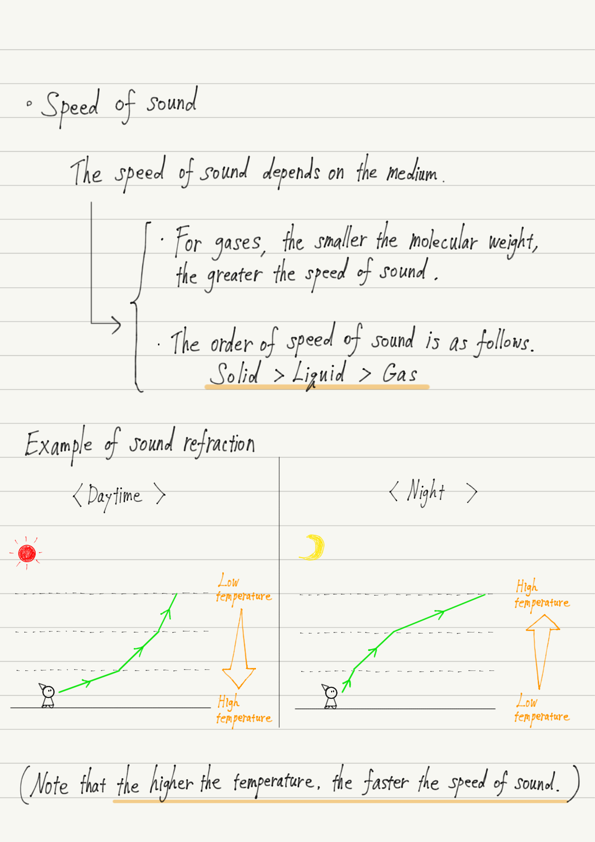 • Speed of sound
The speed of sound depends on the medium.
· For gases, the smaller the molecular weight,
the greater the speed of sound.
· The order of speed of sound is as follows.
Solid > Liquid > Gas
Example of sound refraction
<Daytime>
Low
temperature
High
temperature
<Night>
High
temperature
Low
temperature
(Note that the higher the temperature, the faster the speed of sound.)